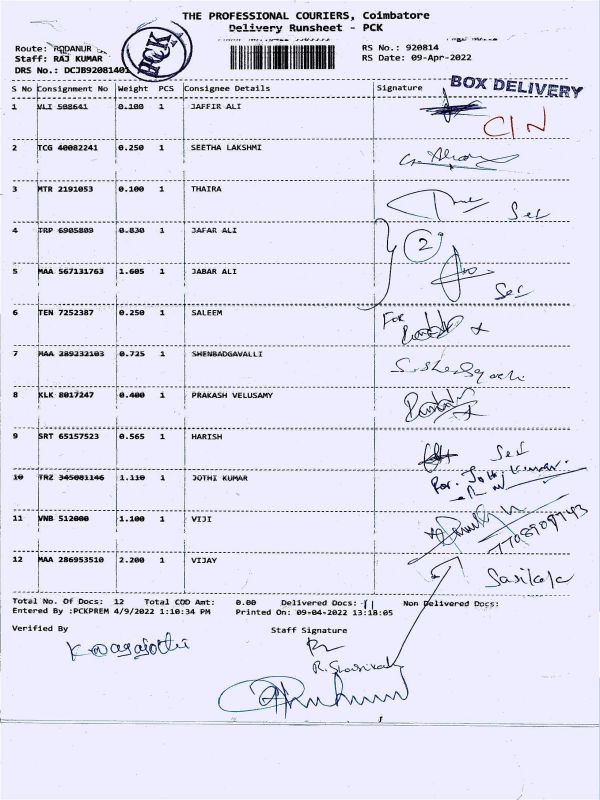 THE PROFESSIONAL COURIERS, Coimbatore
Delivery Runsheet - PCK
PCK
Route: PODANUR
Staff: RAJ KUMAR
DRS No.: DCJB92081401
RS No.: 920814
RS Date: 09-Apr-2022
BOX DELIVERY
S No Consignment No Weight PCS Consignee Details Signature
1 VLI 508641 0.100 1 JAFFIR ALI
CIN
2 TCG 40082241 0.250 1 SEETHA LAKSHMI
3 MTR 2191053 0.100 1 THAIRA
Sel
4 TRP 6905809 0.830 1 JAFAR ALI
2
5 MAA 567131763 1.605 1 JABAR ALI
Sel
6 TEN 7252387 0.250 1 SALEEM
For
7 MAA 289232103 0.725 1 SHENBADGAVALLI
8 KLK 8017247 0.400 1 PRAKASH VELUSAMY
9 SRT 65157523 0.565 1 HARISH
Sel
10 TRZ 345081146 1.110 1 JOTHI KUMAR
For. Jothi Kumar.
11 VNB 512000 1.100 1 VIJI
7708909743
12 MAA 286953510 2.200 1 VIJAY
Total No. Of Docs: 12 Total COD Amt: 0.00 Delivered Docs: 11 Non Delivered Docs:
Entered By :PCKPREM 4/9/2022 1:10:34 PM Printed On: 09-04-2022 13:18:05
Verified By Staff Signature